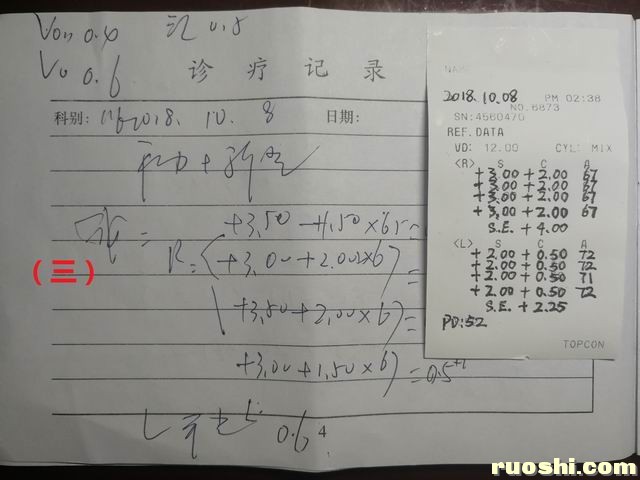 Von 0.4
0.8
Vu 0.6
诊疗记录
科别:
2018. 10. 8
日期:
+3.50 +1.50×65=
(三)
R= +3.00+2.00×67=
+3.50+2.00×67=
+3.00+1.50×67=0.5+1
0.6
4
2018.10.08 PM 02:38
NO.6873
SN:4560470
REF.DATA
VD: 12.00 CYL: MIX
<R> S C A
+3.00 +2.00 67
+3.00 +2.00 67
+3.00 +2.00 67
+3.00 +2.00 67
S.E. +4.00
<L> S C A
+2.00 +0.50 72
+2.00 +0.50 72
+2.00 +0.50 71
+2.00 +0.50 72
S.E. +2.25
PD:52
TOPCON
ruoshi.com